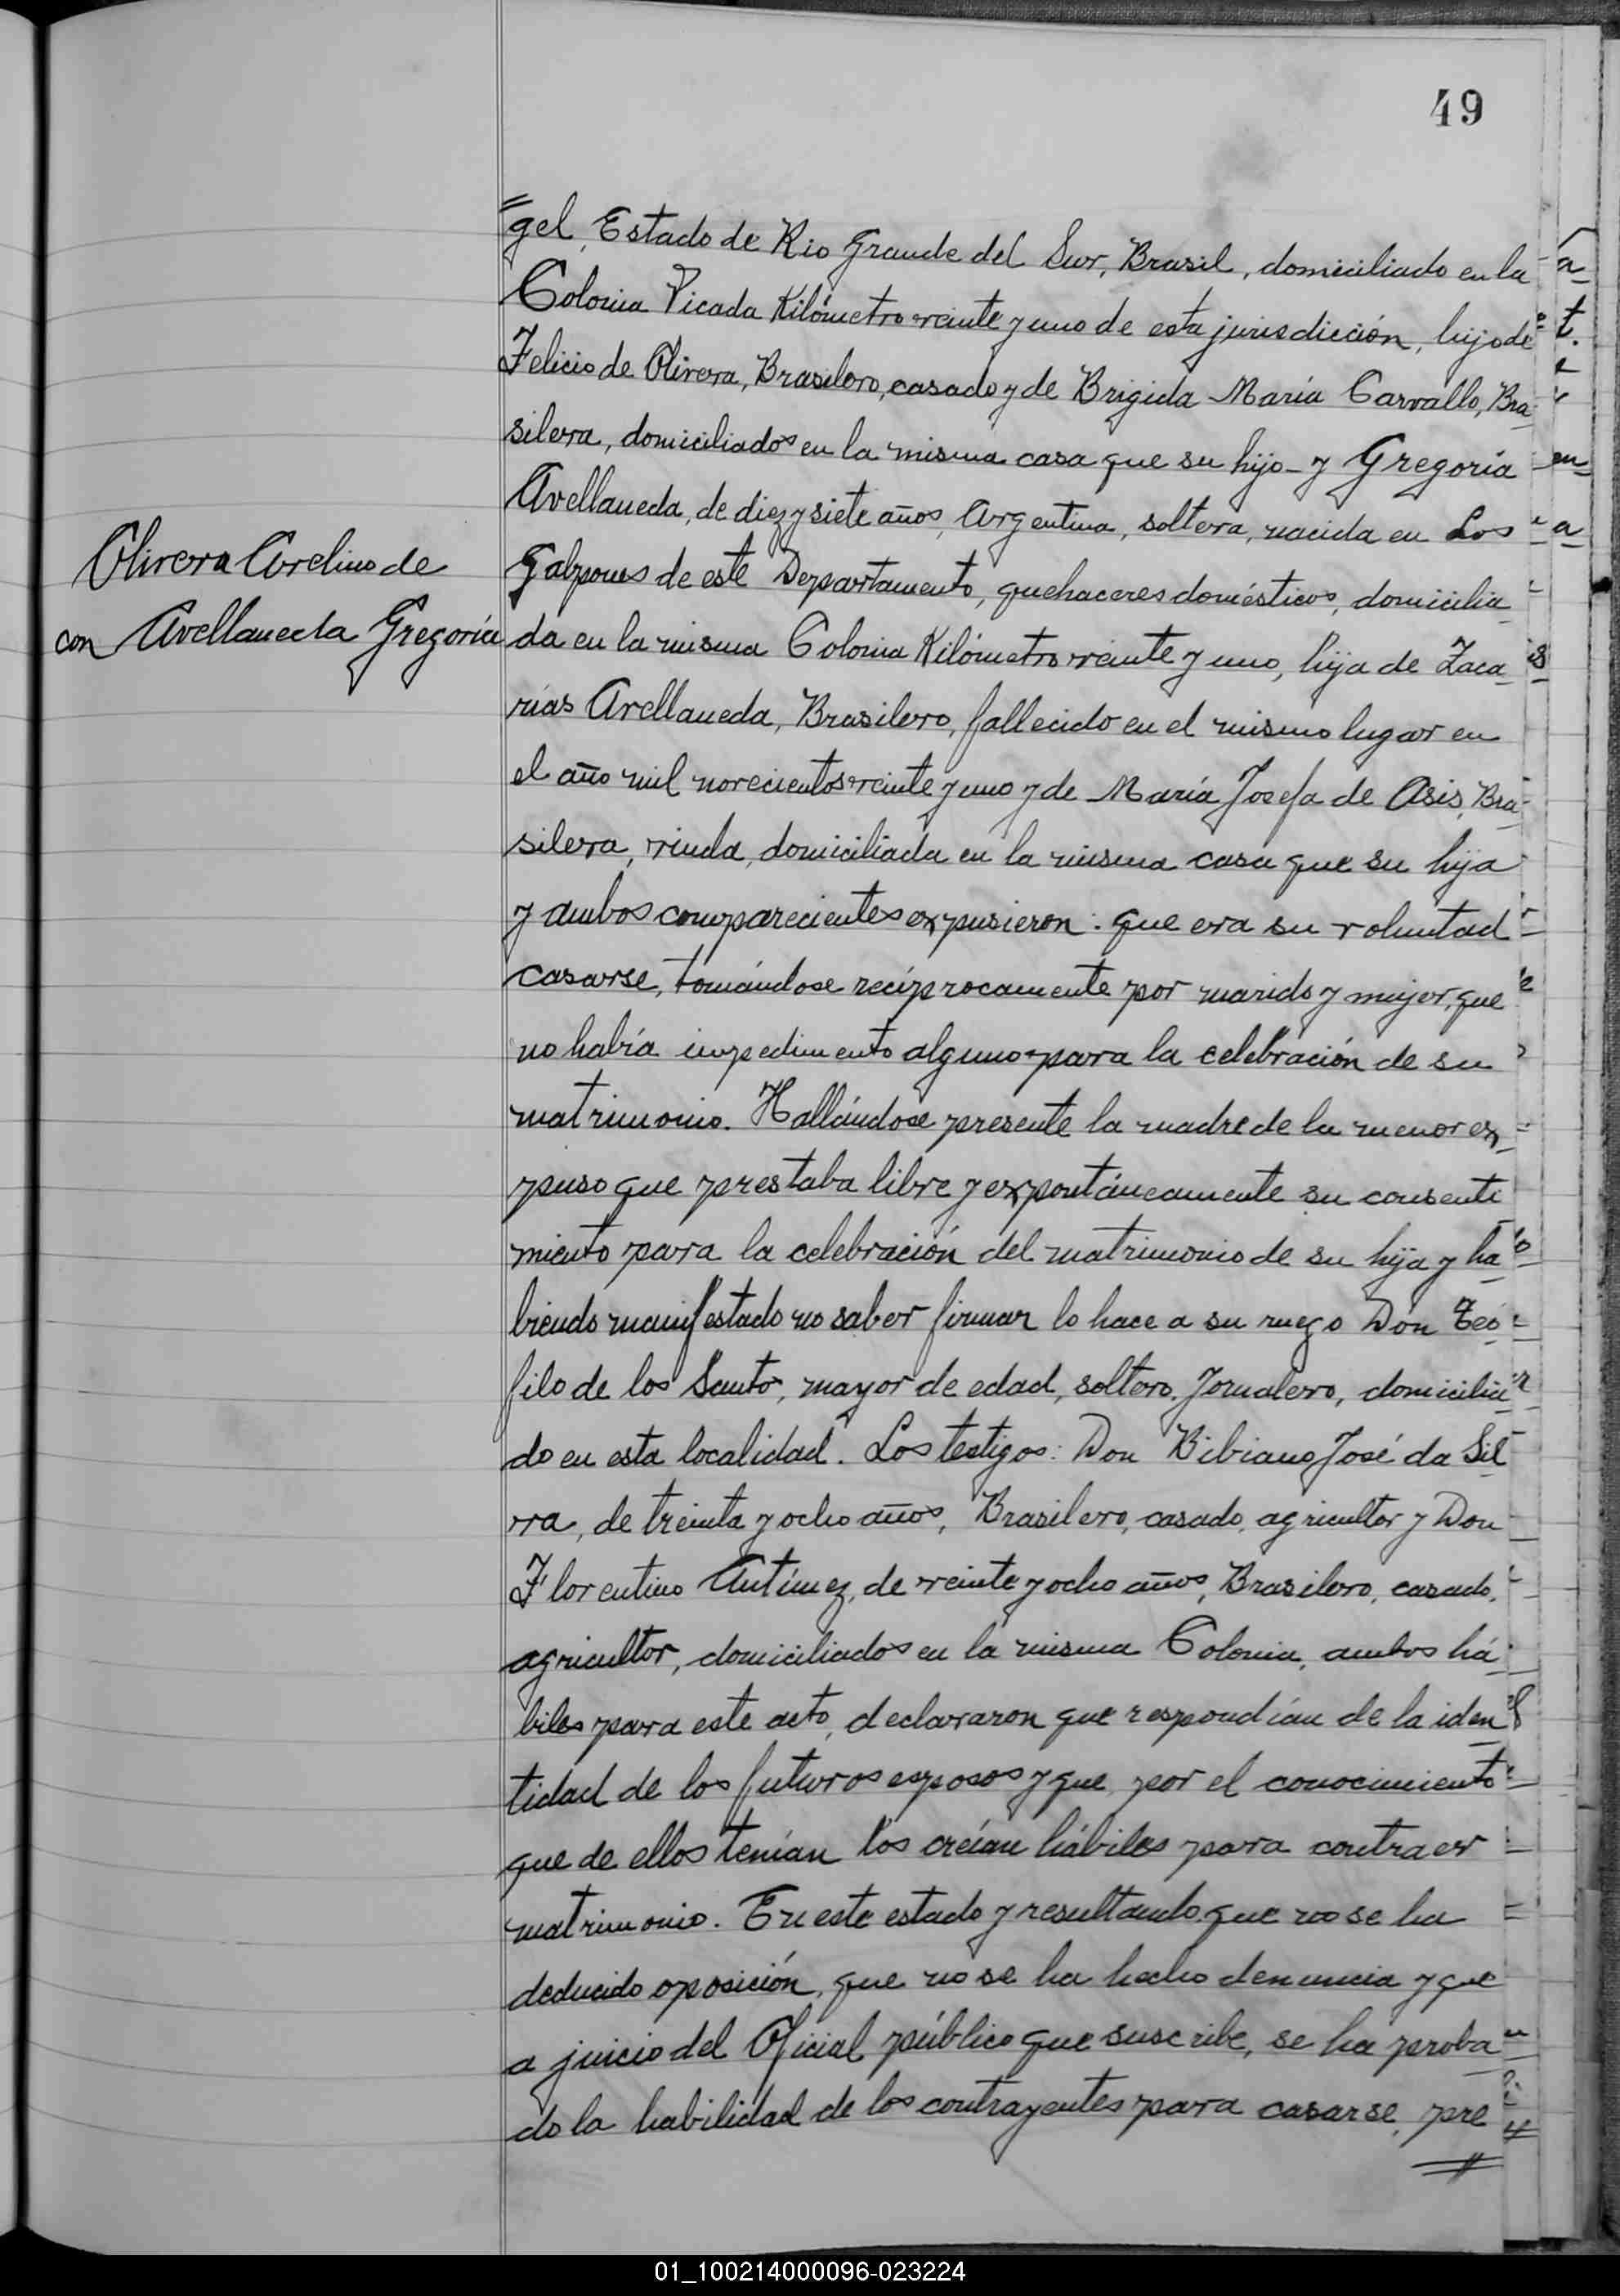 49
gel, Estado de Rio Grande del Sur, Brasil, domiciliado en la
Colonia Picada Kilómetro veinte y uno de esta jurisdicción, hijo de
Felicio de Olivera, Brasilero, casado y de Brigida María Carvallo, Bra-
silera, domiciliados en la misma casa que su hijo - y Gregoria
Avellaneda, de diez y siete años, Argentina, soltera, nacida en Los
Olivera Avelino de
con Avellaneda Gregoria
Galpones de este Departamento, quehaceres domésticos, domicilia-
da en la misma Colonia Kilómetro veinte y uno, hija de Zaca-
rías Avellaneda, Brasilero, fallecido en el mismo lugar en
el año mil novecientos veinte y uno y de María Josefa de Asis, Bra-
silera, viuda, domiciliada en la misma casa que su hija
y ambos comparecientes expusieron: que era su voluntad
casarse, tomándose recíprocamente por marido y mujer, que
no había impedimento alguno para la celebración de su
matrimonio. Hallándose presente la madre de la menor ex-
puso que prestaba libre y expontáneamente su consenti
miento para la celebración del matrimonio de su hija y ha-
biendo manifestado no saber firmar lo hace a su ruego Don Teó-
filo de los Santos, mayor de edad, soltero, Jornalero, domicilia-
do en esta localidad. Los testigos: Don Bibiano José da Sil-
va, de treinta y ocho años, Brasilero, casado, agricultor y Don
Florentino Antúnez, de veinte y ocho años, Brasilero, casado,
agricultor, domiciliados en la misma Colonia, ambos há-
biles para este acto, declararon que respondían de la iden-
tidad de los futuros esposos y que por el conocimiento
que de ellos tenían los creían hábiles para contraer
matrimonio. En este estado y resultando que no se ha
deducido oposición, que no se ha hecho denuncia y que
a juicio del Oficial público que suscribe, se ha proba-
do la habilidad de los contrayentes para casarse, pre
01_100214000096-023224